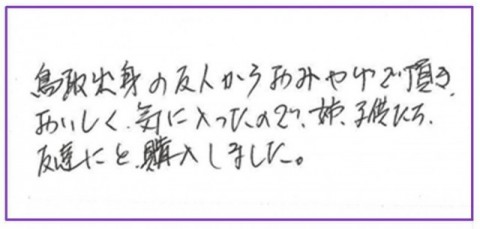 鳥取出身の友人からおみやげで頂き、
おいしく、気に入ったので、姉、子供たち、
友達にと、購入しました。